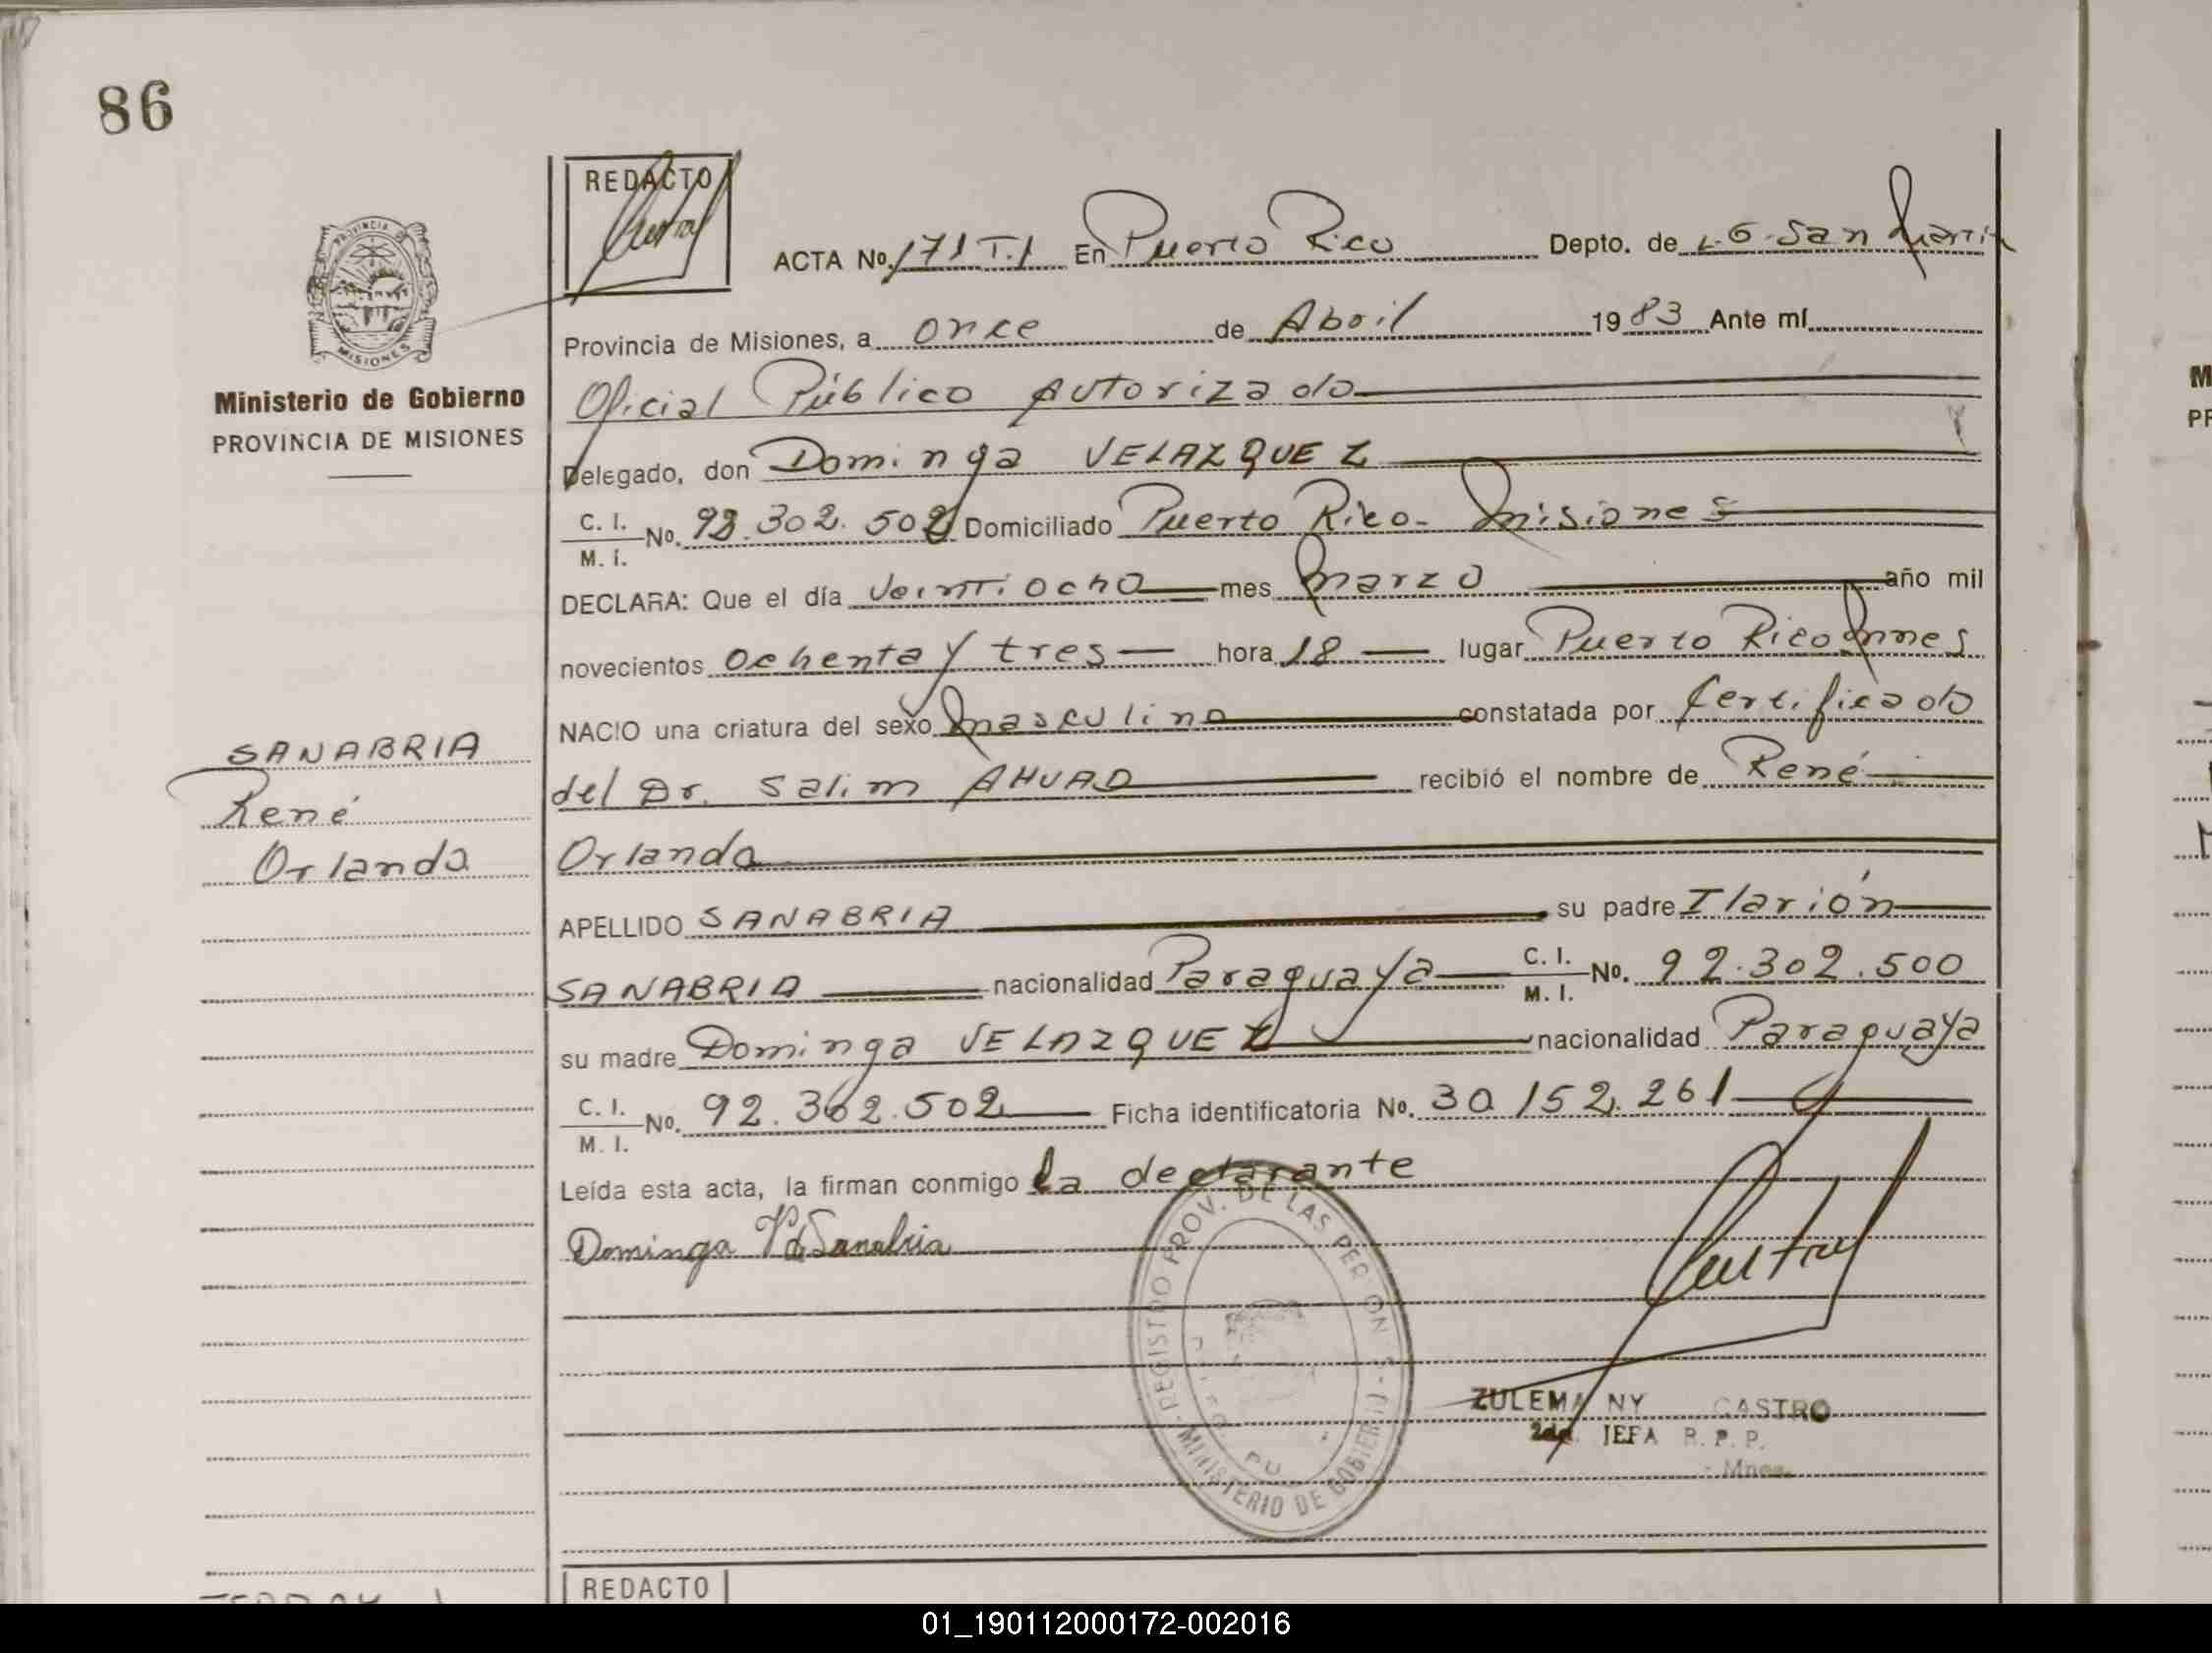 86
REDACTO
ACTA Nº 171 T.1 En Puerto Rico Depto. de L.G. San Martin
Provincia de Misiones, a once de Abril 1983 Ante mí
Oficial Público Autorizado
Delegado, don Dominga VELAZQUEZ
C. I. / M. I. No. 92.302.502 Domiciliado Puerto Rico - Misiones
DECLARA: Que el día veintiocho mes Marzo año mil
novecientos ochenta y tres hora 18 lugar Puerto Rico Mnes
NACIO una criatura del sexo Masculino constatada por Certificado
del Dr. Salim AHUAD recibió el nombre de René
Orlando
APELLIDO SANABRIA su padre Ilarión
SANABRIA nacionalidad Paraguaya C. I. / M. I. No. 92.302.500
su madre Dominga VELAZQUEZ nacionalidad Paraguaya
C. I. / M. I. No. 92.302.502 Ficha identificatoria No. 30.152.261
Leída esta acta, la firman conmigo la declarante
Dominga V. de Sanabria
REGISTRO PROV. DE LAS PERSONAS
MINISTERIO DE GOBIERNO
ZULEMA NY CASTRO
2da. JEFA R. P. P.
Mnes.
PROVINCIA DE
MISIONES
Ministerio de Gobierno
PROVINCIA DE MISIONES
SANABRIA
René
Orlando
REDACTO
01_190112000172-002016